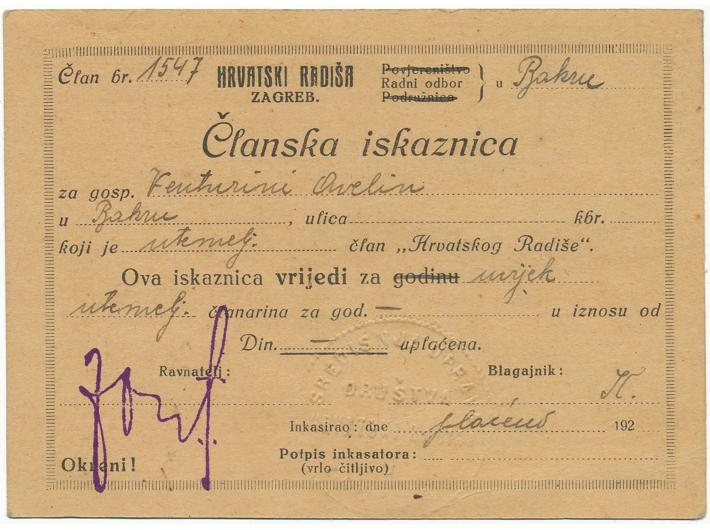 Član br. 1547 HRVATSKI RADIŠA ZAGREB. Povjereništvo Radni odbor Podružnica } u Bakru
Članska iskaznica
za gosp. Venturini Avelin
u Bakru, ulica kbr.
koji je utemelj. član „Hrvatskog Radiše“.
Ova iskaznica vrijedi za godinu uvijek
utemelj. članarina za god. — u iznosu od
Din. — uplaćena.
Ravnatelj: Blagajnik:
DRUŠTVA
Inkasirao: dne plaćeno 192
Potpis inkasatora:
(vrlo čitljivo)
Okreni!